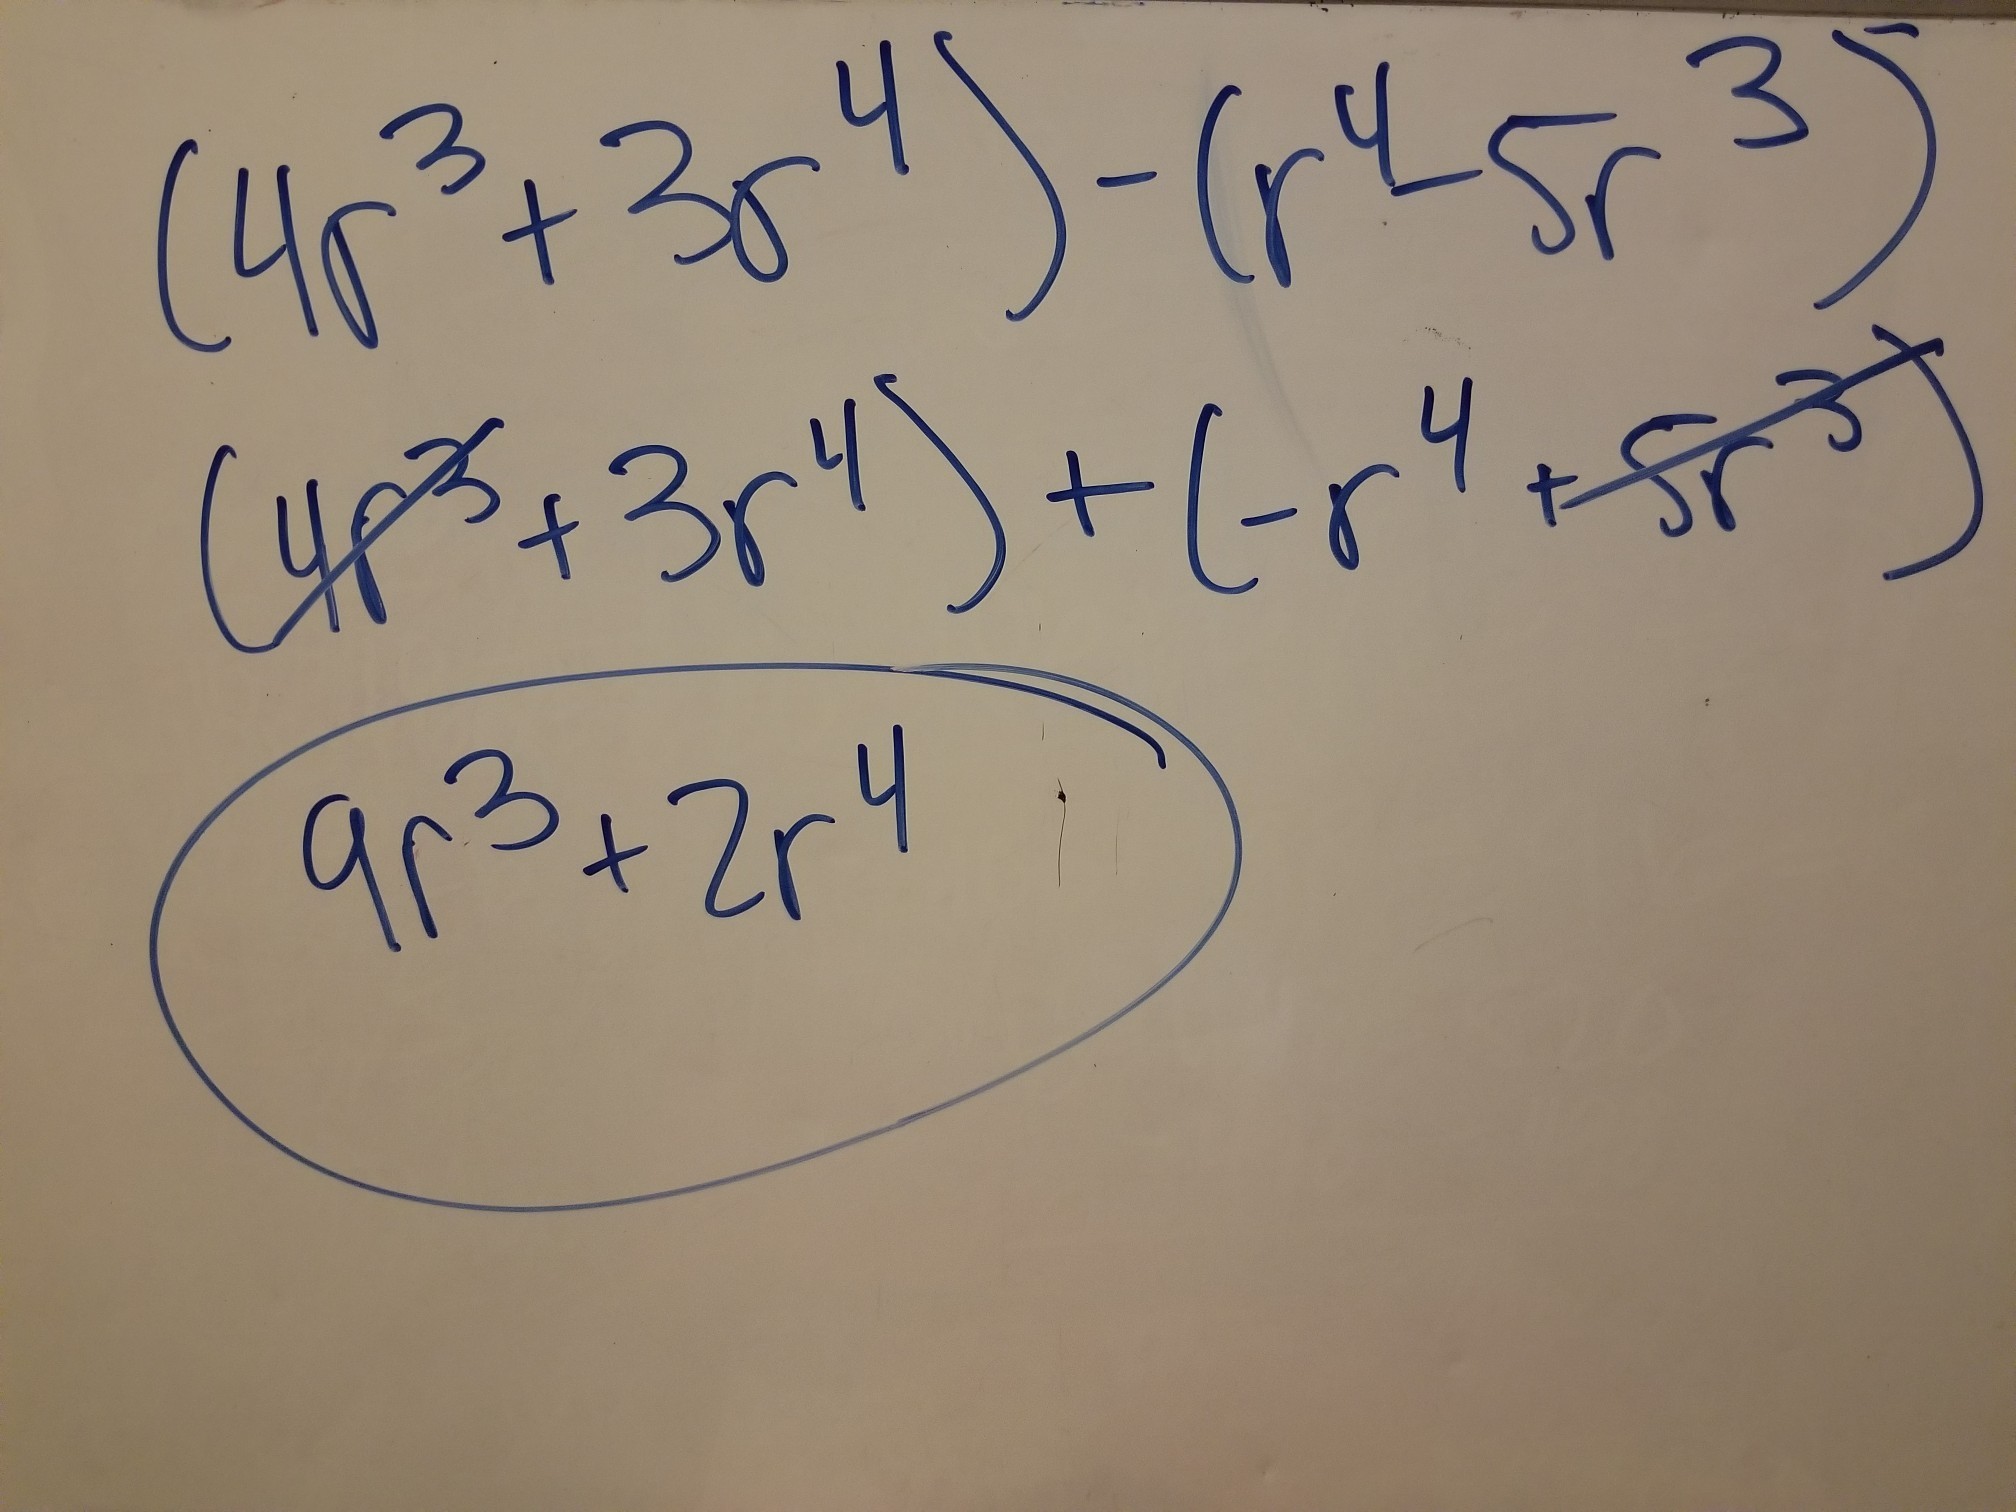 (4r³+3r⁴)-(r⁴-5r³)
(4r³+3r⁴)+(-r⁴+5r³)
9r³+2r⁴